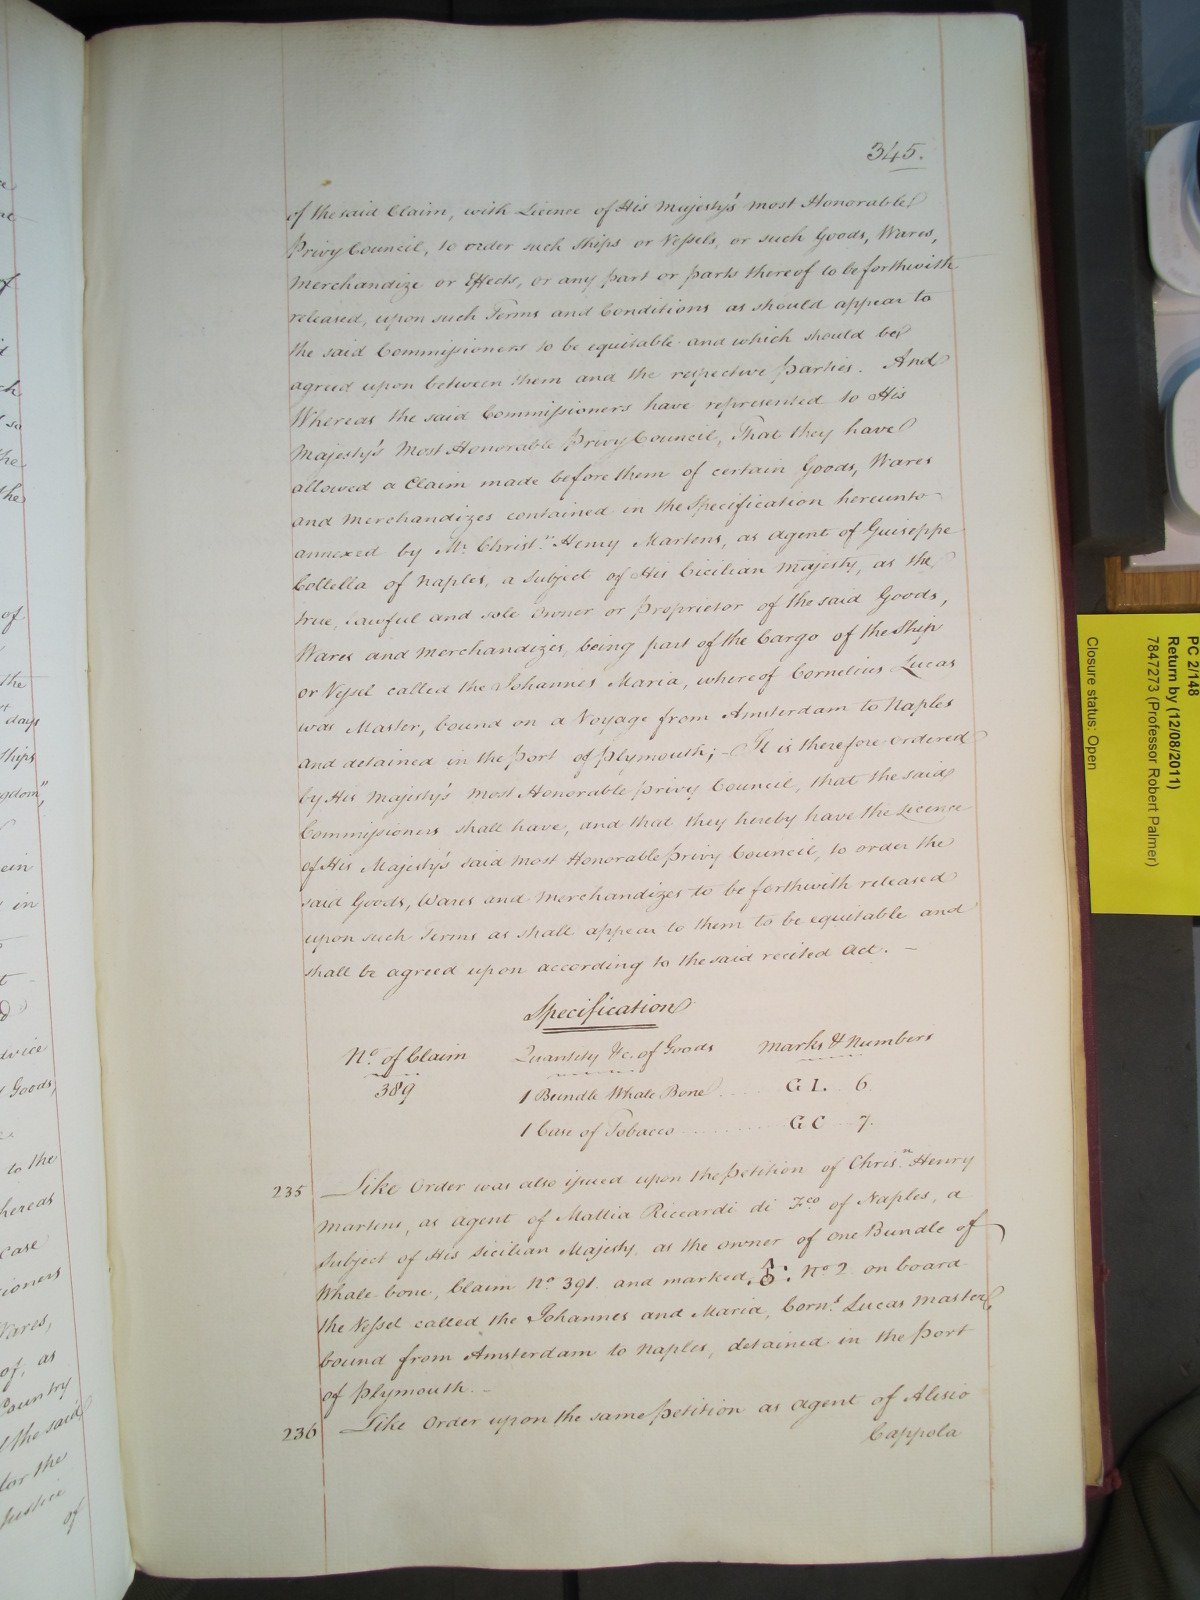 345.
of the said Claim, with Licence of His Majesty's most Honorable
Privy Council, to order such Ships or Vessels, or such Goods, Wares,
Merchandize or Effects, or any part or parts thereof to be forthwith
released, upon such Terms and Conditions as should appear to
the said Commissioners to be equitable and which should be
agreed upon between them and the respective parties. And
Whereas the said Commissioners have represented to His
Majesty's Most Honorable Privy Council, That they have
allowed a Claim made before them of certain Goods, Wares
and Merchandizes contained in the Specification hereunto
annexed by Mr. Christ.n Henry Martens, as agent of Guiseppe
Collella of Naples, a Subject of His Cicilian Majesty, as the
true, Lawful and sole Owner or Proprietor of the said Goods,
Wares and Merchandizes, being part of the Cargo of the Ship
or Vessel called the Johannes Maria, whereof Cornelius Lucas
was Master, bound on a Voyage from Amsterdam to Naples
and detained in the Port of Plymouth; - It is therefore ordered
by His Majesty's most Honorable Privy Council, that the said
Commissioners shall have, and that they hereby have the Licence
of His Majesty's said most Honorable Privy Council, to order the
said Goods, Wares and Merchandizes to be forthwith released
upon such Terms as shall appear to them to be equitable and
shall be agreed upon according to the said recited Act. -
Specification
No. of Claim Quantity &c. of Goods Marks & Numbers
389 1 Bundle Whale Bone ..... G L. 6
1 Case of Tobacco .......... G C 7.
235 Like Order was also issued upon the Petition of Chris.n Henry
Martens, as agent of Mattia Riccardi di Fco of Naples, a
Subject of His Sicilian Majesty, as the owner of one Bundle of
Whale-bone, Claim No. 391. and marked No 2 on board
the Vessel called the Johannes and Maria, Corns. Lucas Master,
bound from Amsterdam to Naples, detained in the Port
of Plymouth. -
236 Like Order upon the same Petition as agent of Alesio
Cappola
PC 2/148
Return by (12/08/2011)
7847273 (Professor Robert Palmer)
Closure status: Open